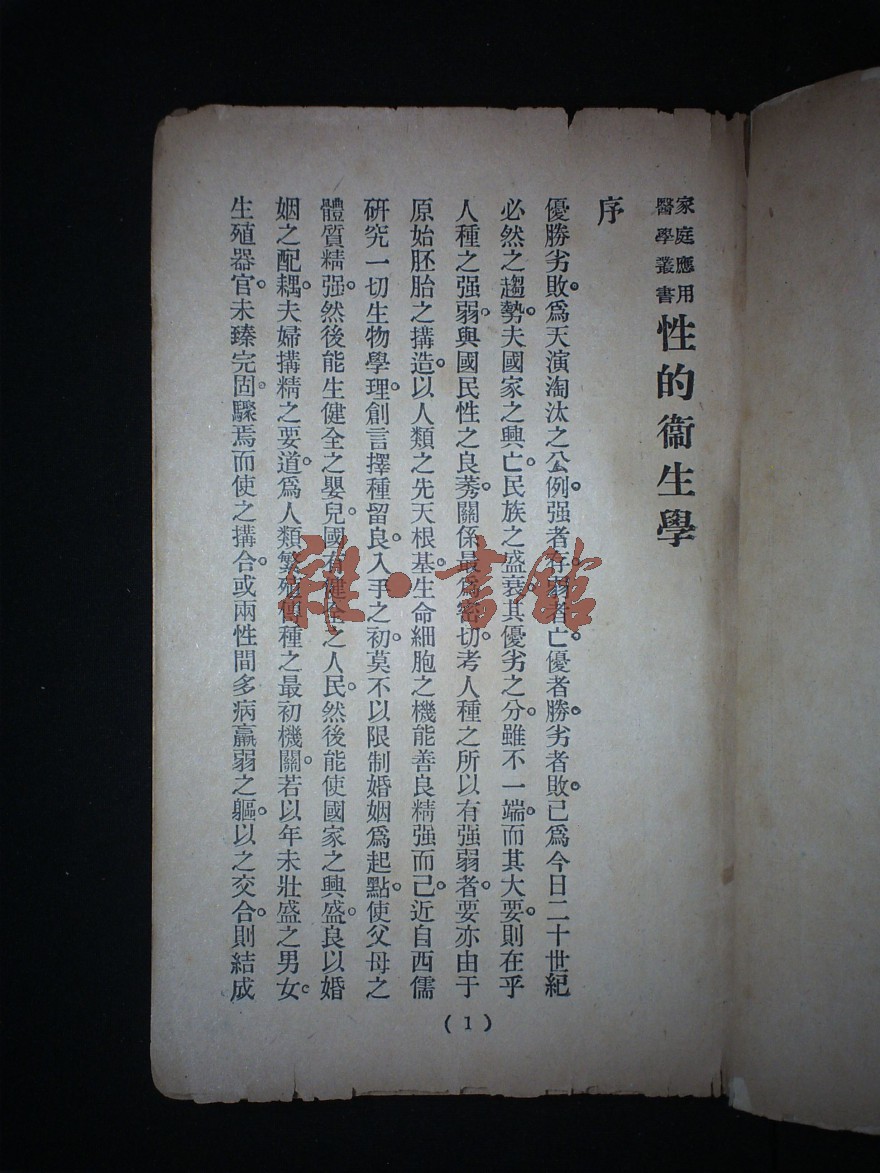 家庭應用
醫學叢書
性的衞生學
序
優勝劣敗。爲天演淘汰之公例。强者存。弱者亡。優者勝。劣者敗。已爲今日二十世紀
必然之趨勢。夫國家之興亡。民族之盛衰。其優劣之分。雖不一端。而其大要。則在乎
人種之强弱。與國民性之良莠。關係最爲密切。考人種之所以有强弱者。要亦由于
原始胚胎之搆造。以人類之先天根基。生命細胞之機能善良精强而已。近自西儒
研究一切生物學理。創言擇種留良。入手之初。莫不以限制婚姻爲起點。使父母之
體質精强。然後能生健全之嬰兒。國有健全之人民。然後能使國家之興盛。良以婚
姻之配耦。夫婦搆精之要道。爲人類繁殖傳種之最初機關。若以年未壯盛之男女。
生殖器官。未臻完固。驟焉而使之搆合。或兩性間多病羸弱之軀。以之交合。則結成
(1)
雜·書館